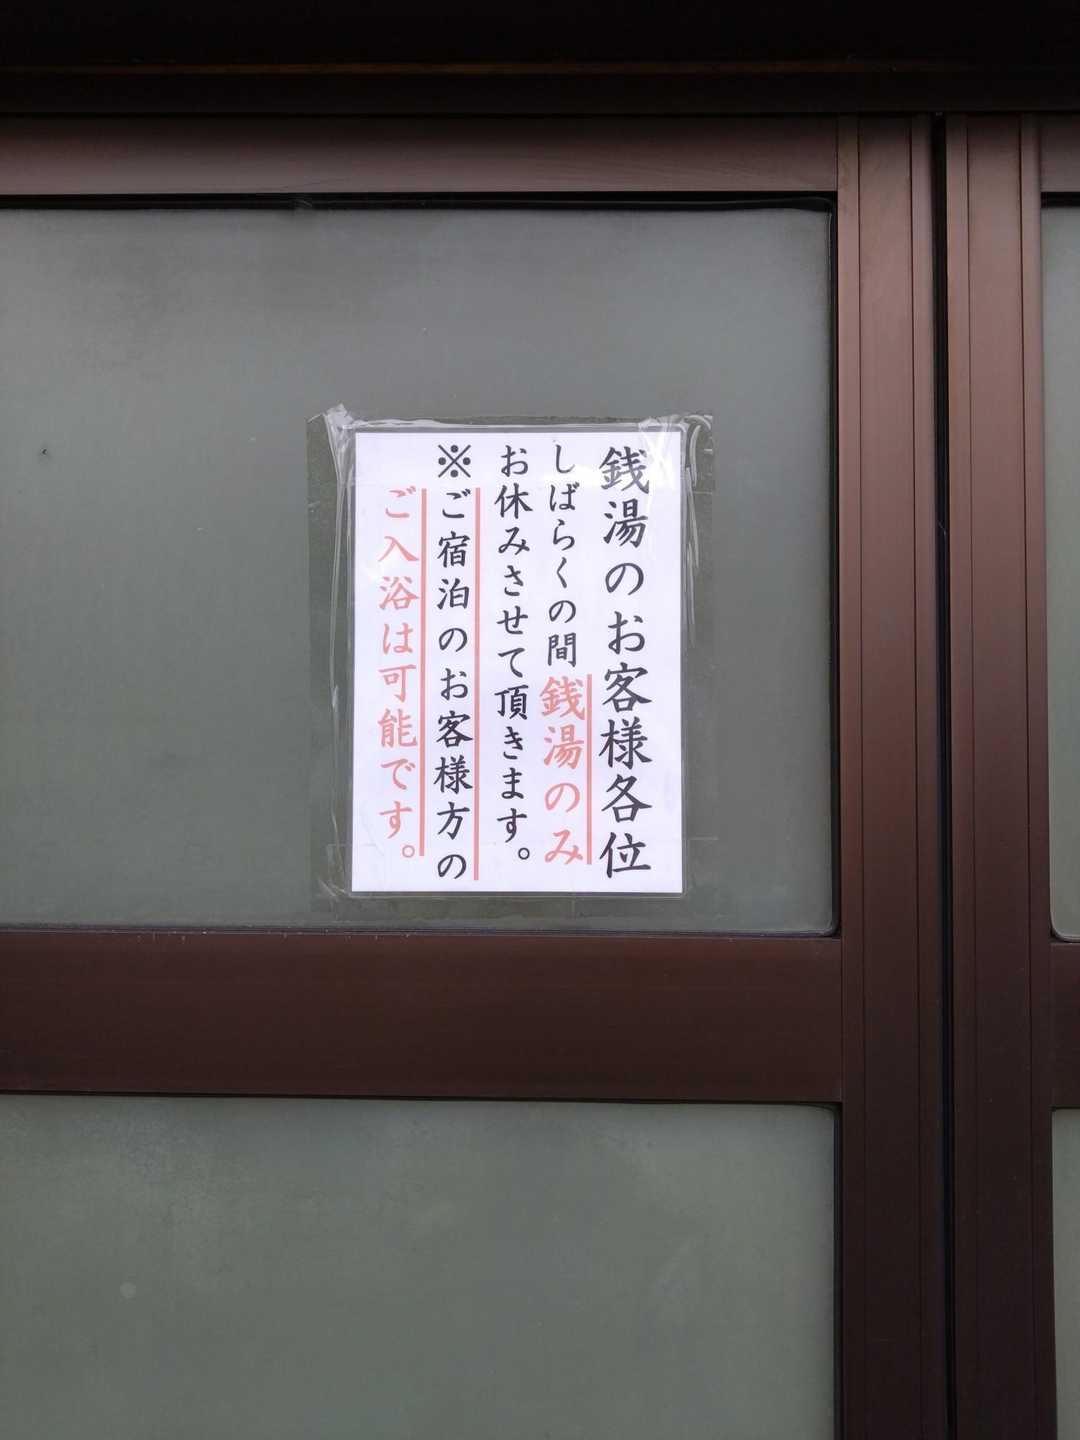 銭湯のお客様各位
しばらくの間銭湯のみ
お休みさせて頂きます。
※ご宿泊のお客様方の
ご入浴は可能です。